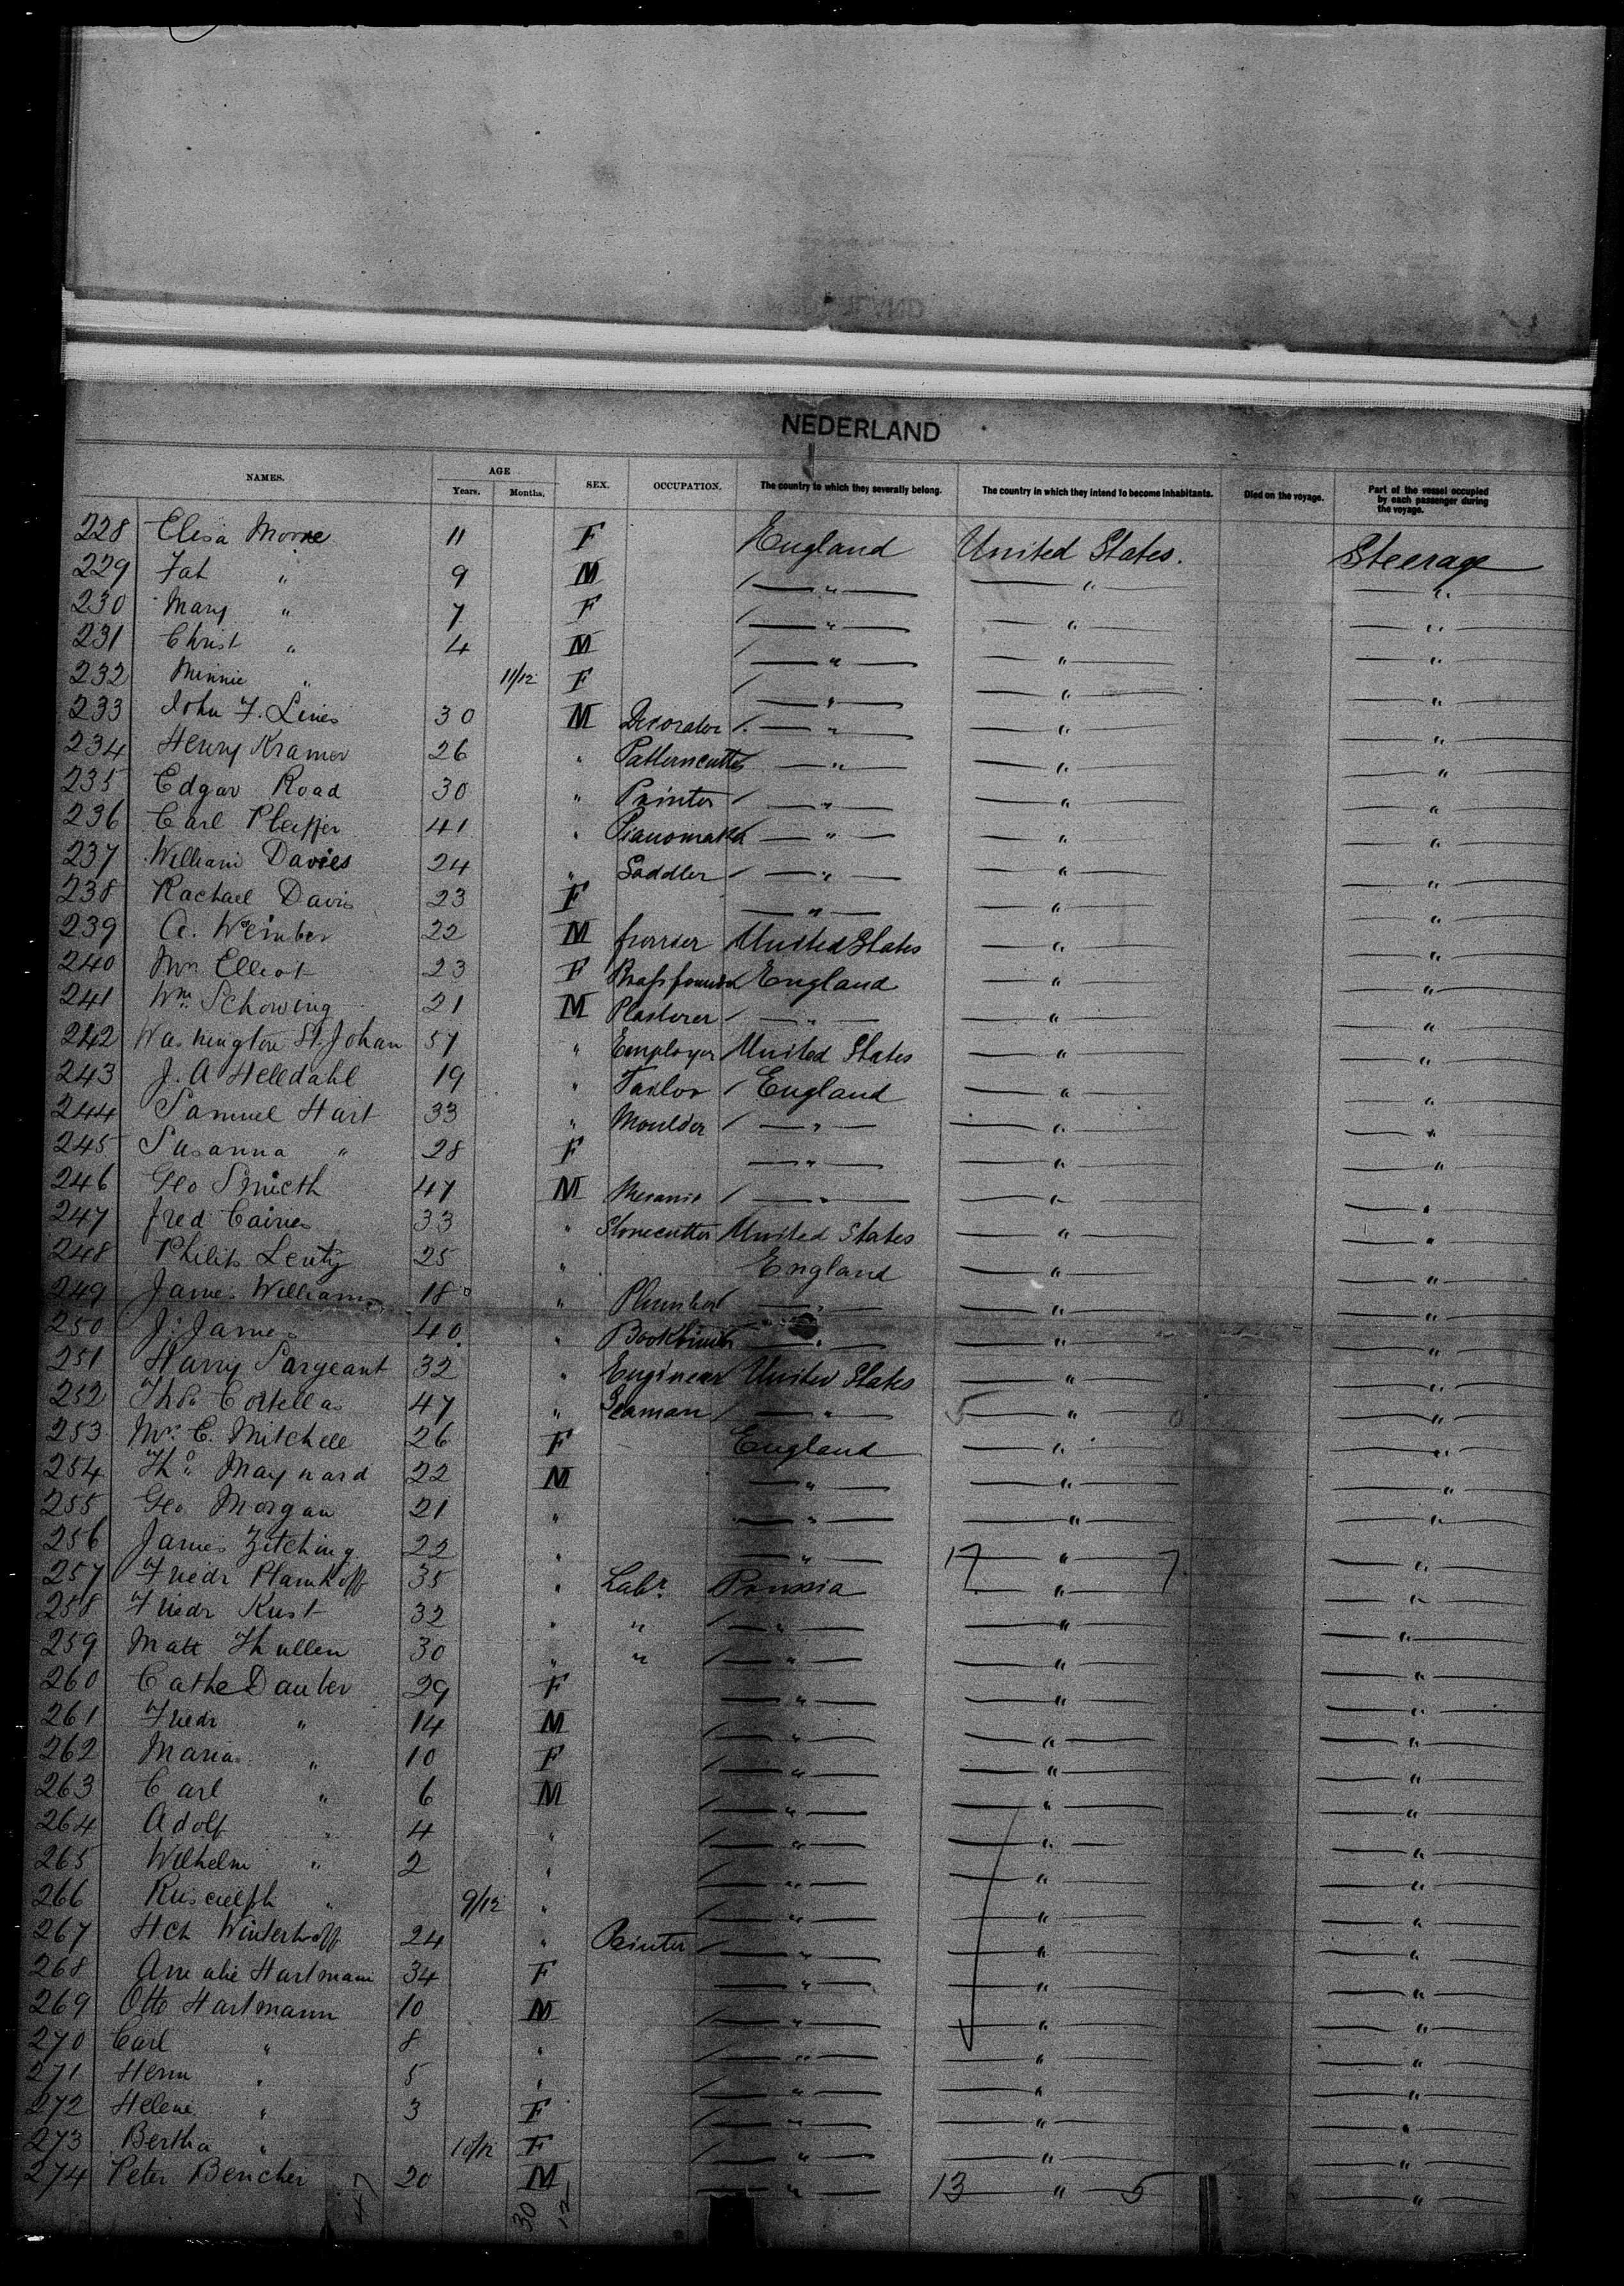 NEDERLAND
NAMES. AGE Years. Months. SEX. OCCUPATION. The country to which they severally belong. The country in which they intend to become inhabitants. Died on the voyage. Part of the vessel occupied by each passenger during the voyage.
228 Elisa Morne 11 F England United States. Steerage
229 " 9 M " " "
230 Mary " 7 F " " "
231 Christ " 4 M " " "
232 Minnie " 11/12 F " " "
233 John F. Lines 30 M Decorator " " "
234 Henry Kramer 26 " Patterncutter " " "
235 Edgar Road 30 " Printer " " "
236 Carl Pfeiffer 41 " Pianomaker " " "
237 William Davies 24 " Saddler " " "
238 Rachael Davis 23 F " " "
239 A. 22 M United States " "
240 Elliot 23 F England " "
241 Wm. Schowing 21 M Plasterer " " "
242 Washington St. Johan 57 " Employer United States " "
243 J. A Helldahl 19 " Tailor England " "
244 Samuel Hart 33 " Moulder " " "
245 Susanna " 28 F " " "
246 Geo Smieth 47 M " " "
247 Fred Caines 33 " Stonecutter United States " "
248 Philip 25 " England " "
249 James Williams 18 " Plumber " " "
250 J. James 40 " Bookbinder " " "
251 Harry Sargeant 32 " Engineer United States " "
252 Thos. 47 " Seaman " 5 " 0 "
253 Mrs. C. Mitchell 26 F England " "
254 Thos. Maynard 22 M " " "
255 Geo. Morgan 21 " " " "
256 James 22 " " 17 " 7 "
257 Friedr 35 " Labr. Prussia " "
258 Friedr Kust 32 " " " " "
259 Matt Thullen 30 " " " " "
260 Cathe Dauber 29 F " " "
261 Friedr " 14 M " " "
262 Maria " 10 F " " "
263 Carl " 6 M " " "
264 Adolf " 4 " " " "
265 Wilhelm " 2 " " " "
266 " 9/12 " " " "
267 Hch Winterhoff 24 " Painter " " "
268 Amalie Hartmann 34 F " " "
269 Otto Hartmann 10 M " " "
270 Carl " 8 " " " "
271 Herm " 5 " " " "
272 Helene " 3 F " " "
273 Bertha " 10/12 F " " "
274 Peter Bencher 20 M " 13 " 5 "
47 30 17